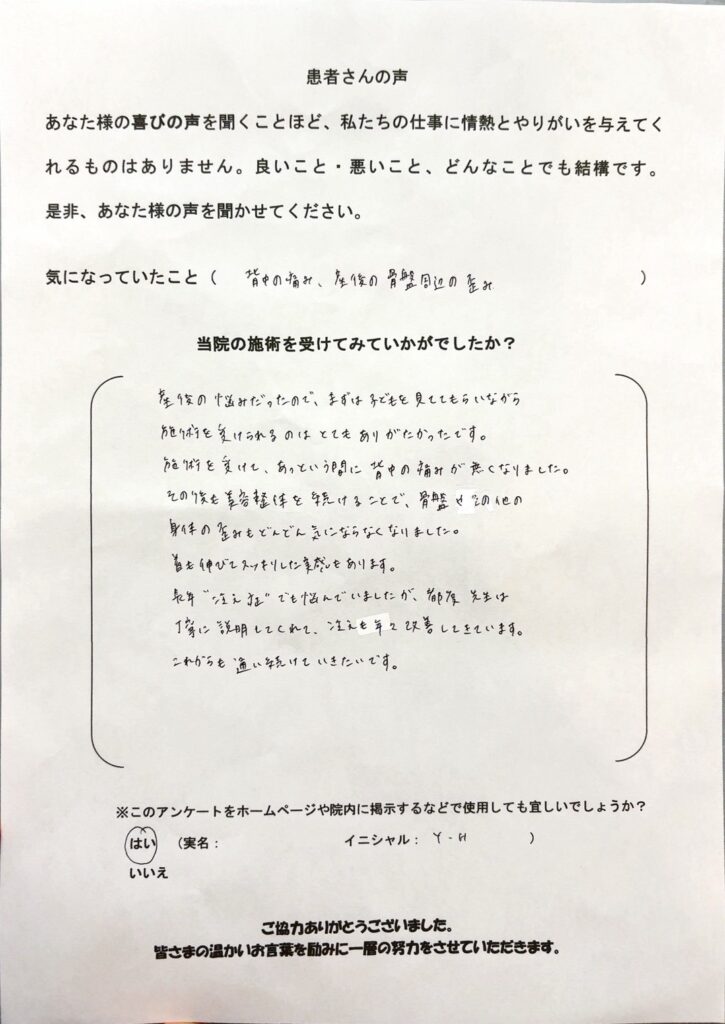 患者さんの声
あなた様の喜びの声を聞くことほど、私たちの仕事に情熱とやりがいを与えてく
れるものはありません。良いこと・悪いこと、どんなことでも結構です。
是非、あなた様の声を聞かせてください。
気になっていたこと（ 背中の痛み、産後の骨盤周辺の歪み ）
当院の施術を受けてみていかがでしたか？
産後の悩みだったので、まずは子どもを見ててもらいながら
施術を受けられるのはとてもありがたかったです。
施術を受けて、あっという間に背中の痛みが無くなりました。
その後も美容整体を続けることで、骨盤やその他の
身体の歪みもどんどん気にならなくなりました。
首も伸びてスッキリした実感もあります。
長年"冷え症"でも悩んでいましたが、都度先生は
丁寧に説明してくれて、冷えも年々改善してきています。
これからも通い続けていきたいです。
※このアンケートをホームページや院内に掲示するなどで使用しても宜しいでしょうか？
はい （実名： イニシャル： Y-H ）
いいえ
ご協力ありがとうございました。
皆さまの温かいお言葉を励みに一層の努力をさせていただきます。